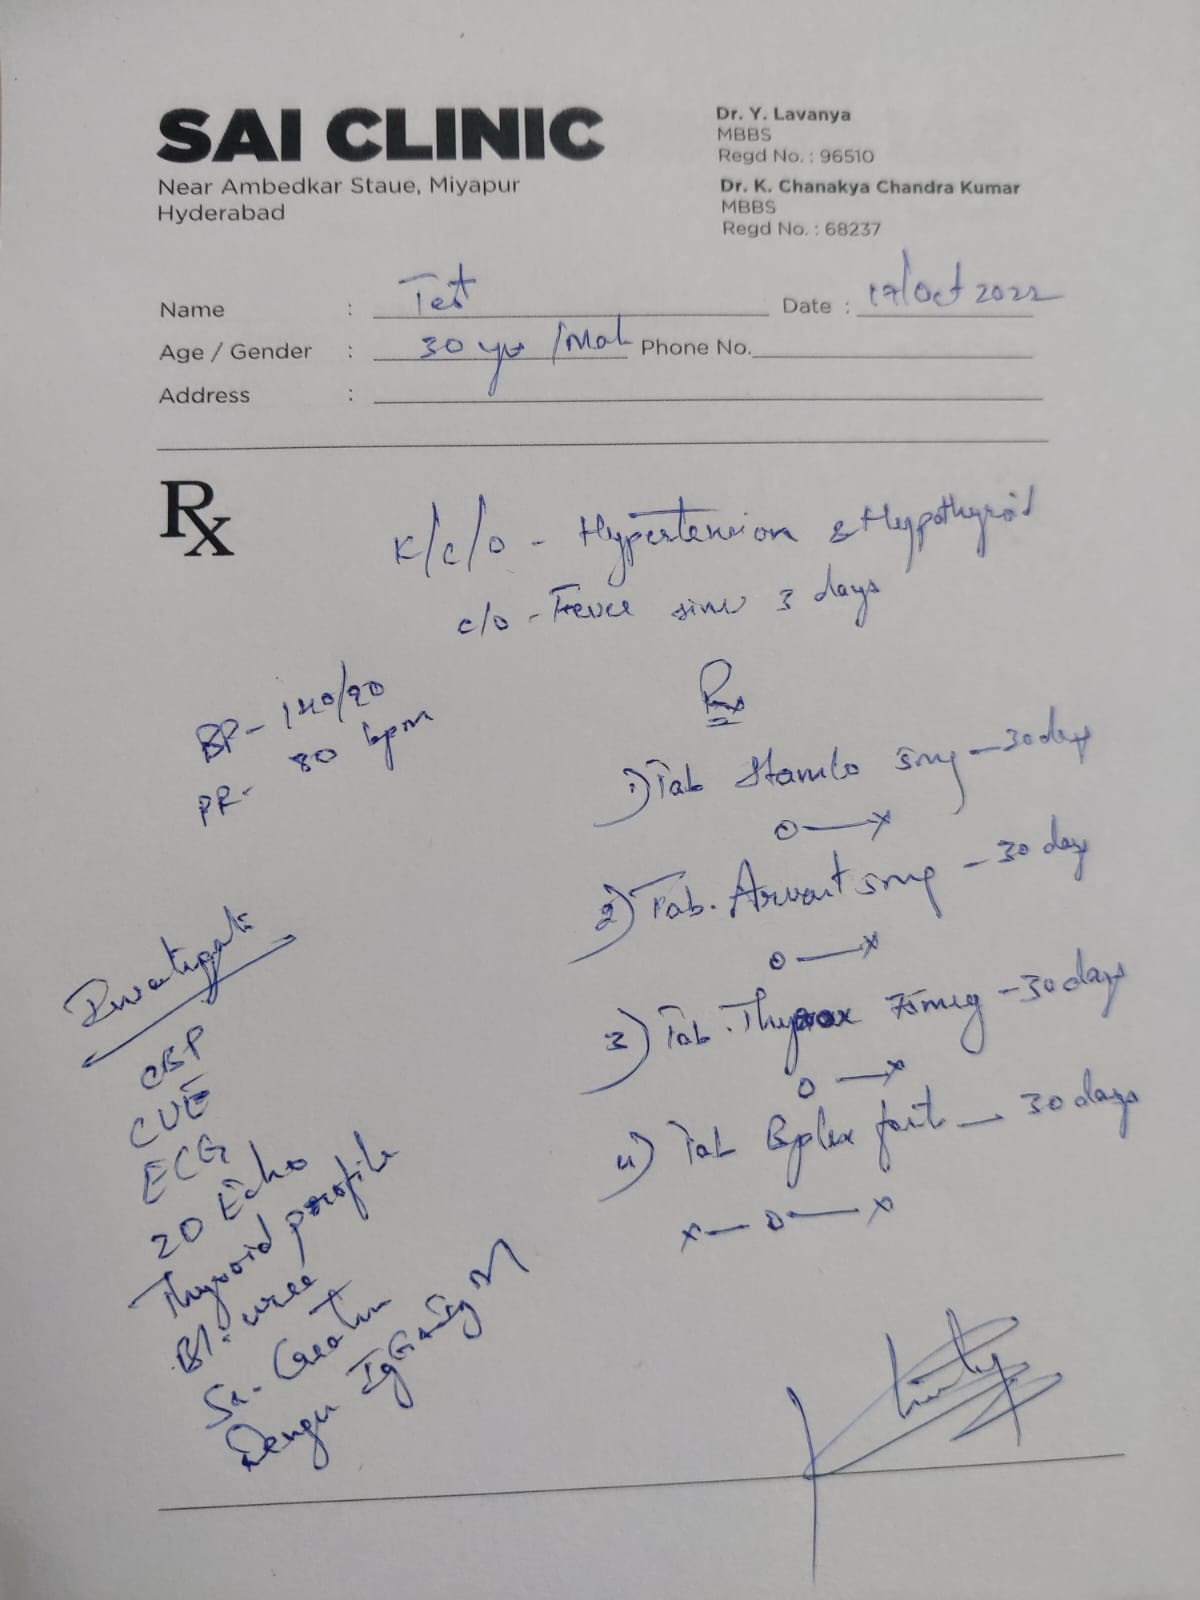 SAI CLINIC
Near Ambedkar Staue, Miyapur
Hyderabad
Dr. Y. Lavanya
MBBS
Regd No. : 96510
Dr. K. Chanakya Chandra Kumar
MBBS
Regd No. : 68237
Name : Test
Date : 17/Oct 2022
Age / Gender : 30 yrs /Male
Phone No.
Address :
Rx
K/c/o - Hypertension & Hypothyroid
c/o - Fever since 3 days
BP - 140/90
PR - 80 bpm
Rx
1) Tab Stamlo 5mg - 30 days
o — x
2) Tab. 5mg - 30 days
o — x
3) Tab. Thyrox 75mcg - 30 days
o — x
4) Tab Bplex fort — 30 days
x — o — x
CBP
CUE
ECG
2D Echo
Thyroid profile
Bl. urea
Sr. Creatin
Dengu IgG & IgM